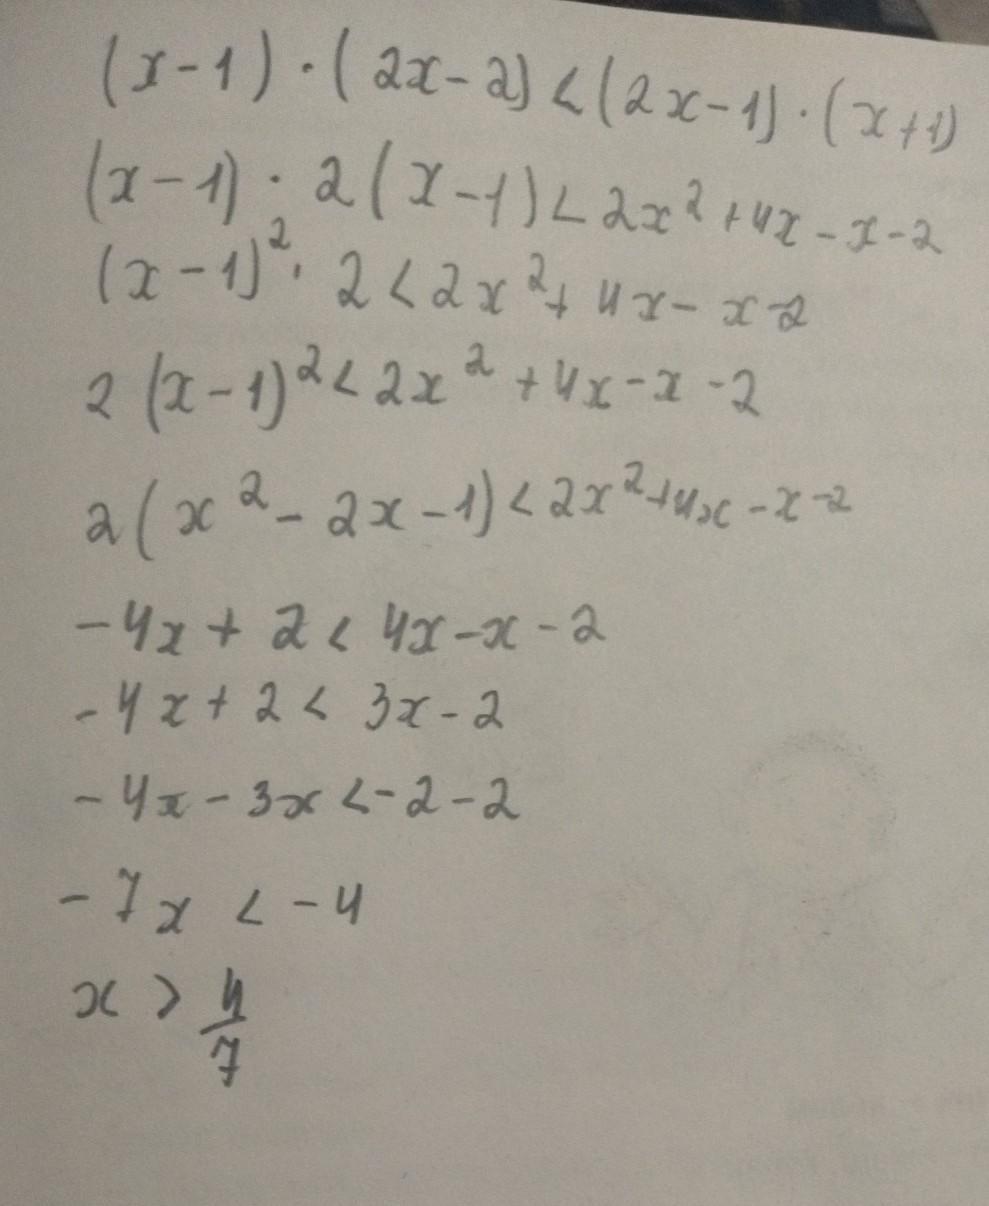 (x-1)·(2x-2)<(2x-1)·(x+1)
(x-1)·2(x-1)<2x²+4x-x-2
(x-1)²·2<2x²+4x-x-2
2(x-1)²<2x²+4x-x-2
2(x²-2x-1)<2x²+4x-x-2
-4x+2<4x-x-2
-4x+2<3x-2
-4x-3x<-2-2
-7x<-4
x>4/7